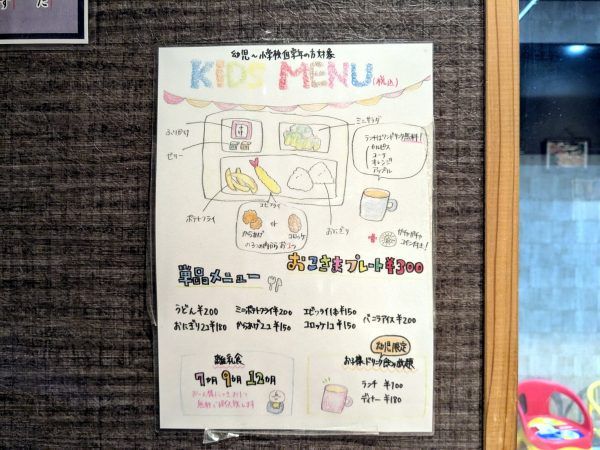 幼児〜小学校低学年の方対象
KIDS MENU
(税込)
ふりかけ
ゼリー
ミニサラダ
ランチはワンドリンク無料!
カルピス
コーラ
オレンジ
アップル
ポテトフライ
エビフライ
おにぎり
からあげ or コロッケ
ガチャガチャ
コイン付き!
おこさまプレート¥300
単品メニュー
うどん¥200
ミニポテトフライ¥200
エビフライ1本¥150
バニラアイス¥200
おにぎり2コ¥180
からあげ2コ¥150
コロッケ1コ¥150
離乳食
7か月 9か月 12か月
無料で提供致します
幼児限定
お子様ドリンク飲み放題
ランチ ¥100
ディナー ¥180